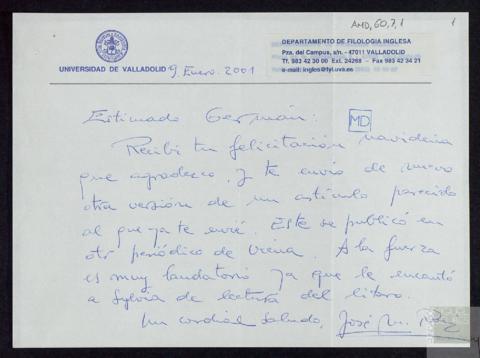 AMD, 60, 7, 1
1
DEPARTAMENTO DE FILOLOGIA INGLESA
Pza. del Campus, s/n. - 47011 VALLADOLID
Tf. 983 42 30 00 Ext. 24268 - Fax 983 42 34 21
e-mail: ingles@fyl.uva.es
UNIVERSIDAD DE VALLADOLID 9 Enero. 2001
Estimado Germán:
MD
Recibí tu felicitación navideña
que agradezco. Y te envío de nuevo
otra versión de un artículo parecido
al que ya te envié. Este se publicó en
otr periódico de Viena. A la fuerza
es muy laudatorio ya que le encantó
a Sylvia de lectura del libro.
Un cordial saludo, José M.